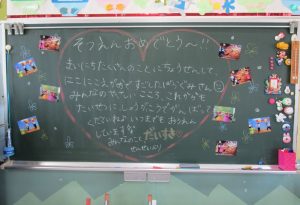 そつえんおめでとう〜!!
まいにちたくさんのことにちょうせんして、
にこにこえがおですごしたばら ぐみさん
みんなのやさしいこころ、これからも
たいせつにしょうがっこうでも、がんばって
くださいね いつまでも おうえん
しています
みんなのこと だいすき
せんせいより